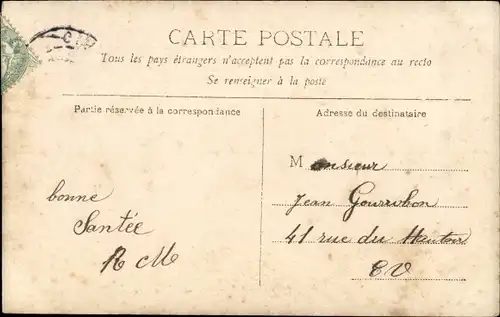 CARTE POSTALE
Tous les pays étrangers n'acceptent pas la correspondance au recto
Se renseigner à la poste
Partie réservée à la correspondance
Adresse du destinataire
bonne
Santée
R M
Monsieur
Jean
41 rue du
E V